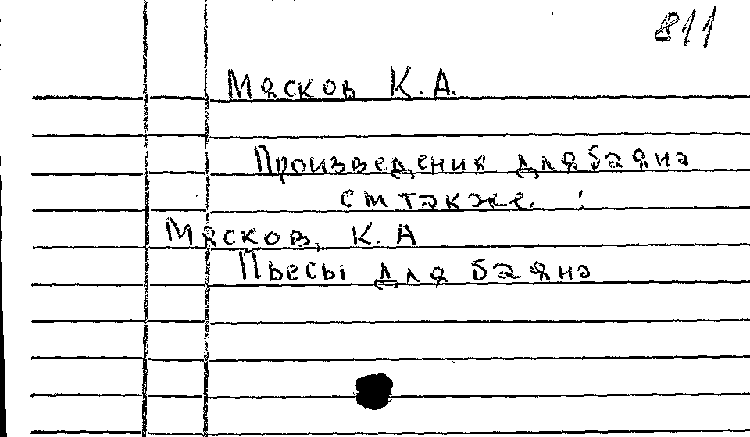 811
Мясков К.А.
Произведения для баяна
см также :
Мясков, К.А
Пьесы для баяна